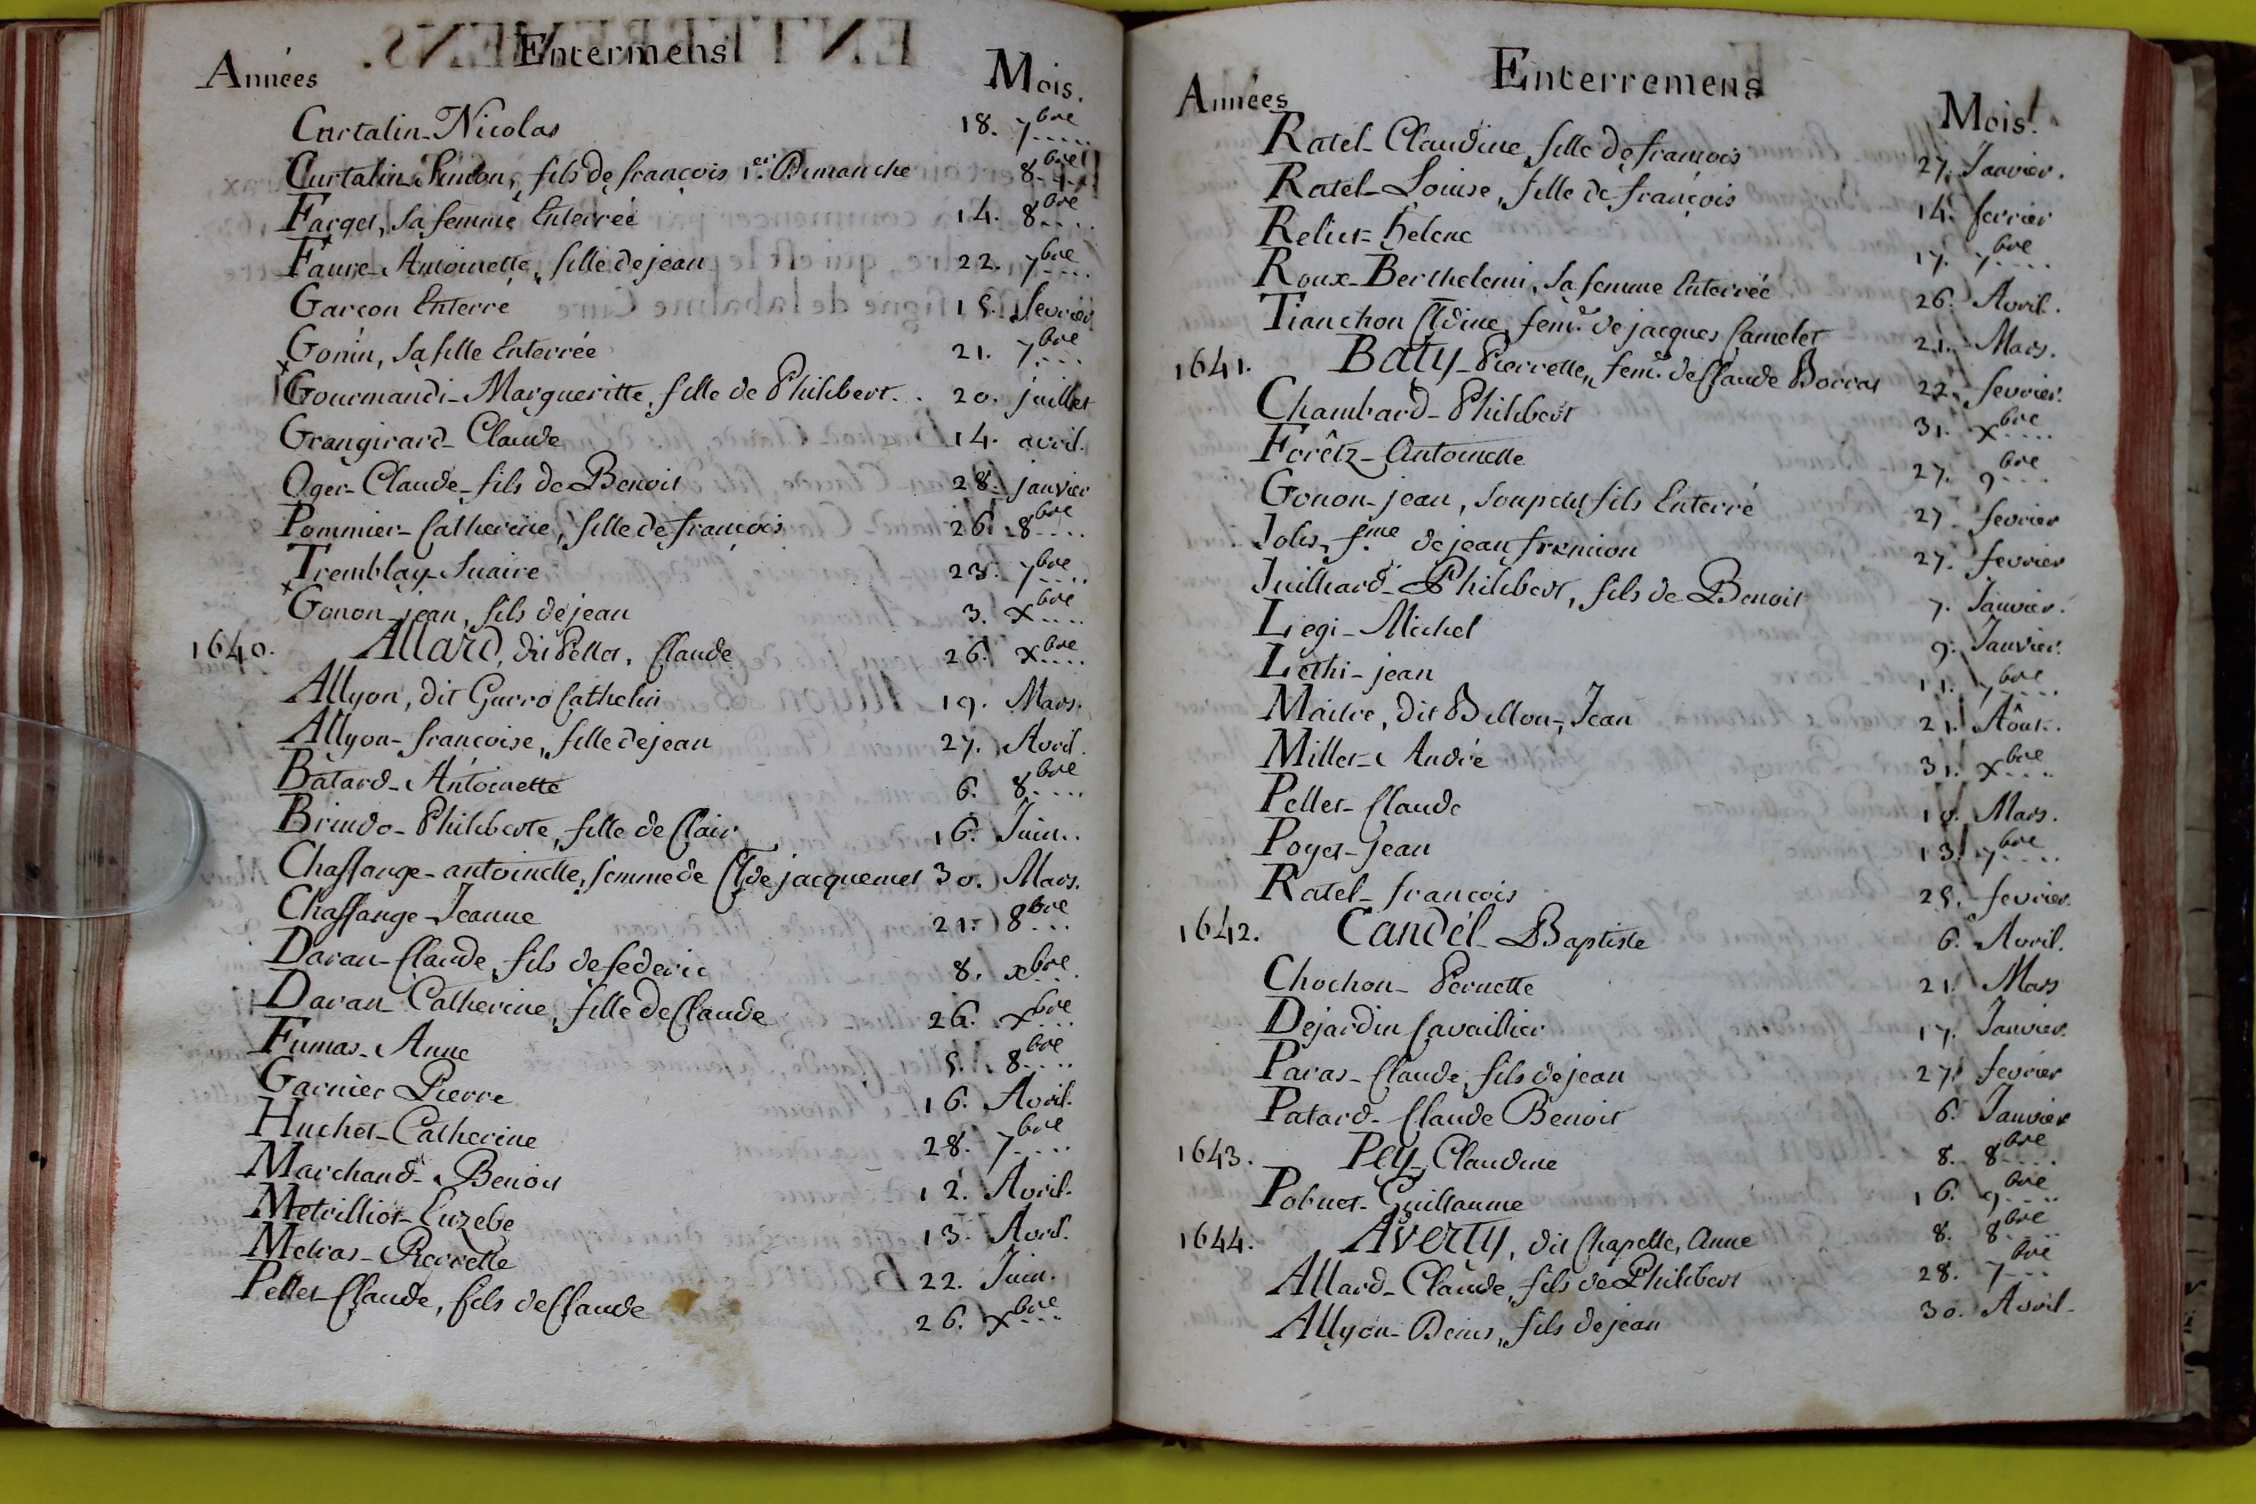 Entermens
Années Mois.
Curtalin - Nicolas 18. 7bre
Curtalin Simon, fils de françois 1.er Dimanche 8bre
Farget, sa femme Enterrée 14. 8bre
Faure - Antoinette, fille de jean 22. 7bre
Garcon Enterré 15. fevrier
Gonin, sa fille Enterrée 21. 7bre
Gourmandi - Margueritte, fille de Philibert. 20. juillet
Grangirard - Claude 14. avril.
Oger - Claude - fils de Benoit 28. janvier
Pommier - Catherine, fille de françois 26. 8bre
Tremblay - Suaire 23. 7bre
Gonon - jean, fils de jean 3. xbre
1640. Allard, dit Pellet, Claude 26. xbre
Allyon, dit Gurro Cathelin 19. Mars.
Allyon - françoise, fille de jean 27. Avril.
Bâtard - Antoinette 6. 8bre
Brindo - Philiberte, fille de Clair 16. Juin.
Chassange - antoinette, femme de Cl.de jacquemet 30. Mars.
Chassange - Jeanne 21. 8bre
Daran - Claude, fils de federic 8. xbre.
Daran - Catherine, fille de Claude 26. xbre
Fumas - Anne 5. 8bre
Garnier Pierre 16. Avril.
Huchet - Catherine 28. 7bre
Marchand - Benoit 12. Avril.
Metrilliot - Euzebe 13. Avril.
Metras - Pierrette 22. Juin.
Pellet - Claude, fils de Claude 26. xbre
Enterremens
Années Mois.
Ratel - Claudine, fille de francois 27. Janvier.
Ratel - Louise, fille de françois 14. fevrier
Reliut - helene 17. 7bre
Roux - Berthelemi, sa femme Enterrée 26. Avril.
Tianchon Cl.dine, fem.e de jacques Camelet 21. Mars.
1641. Baty - Pierrette, fem.e de Claude Borrat 22. fevrier.
Chambard - Philibert 31. xbre
Forêtz - Antoinette 27. 9bre
Gonon - jean, son petit fils Enterré 27. fevrier
Jolis, f.me de jean fremion 27. fevrier
Juilliard - Philibert, fils de Benoit 7. Janvier.
Liegi - Michel 9. Janvier.
Lethi - jean 11. 7bre
Maitre, dit Billon, Jean 21. Aôut.
Millet - André 31. xbre
Pellet - Claude 10. Mars.
Poyet - Jean 13. 7bre
Ratel - francois 25. fevrier.
1642. Candél - Baptiste 6. Avril.
Chochon - Pernette 21. Mars
Dejardin Cavaillier 17. Janvier.
Paras - Claude, fils de jean 27. fevrier
Patard - Claude Benoit 6. Janvier
1643. Pey - Claudine 8. 8bre
Pobuet - Guillaume 16. 9bre
1644. Averty, dit Chapelle, Anne 8. 8bre
Allard - Claude, fils de Philibert 28. 7bre
Allyon - Denis, fils de jean 30. Avril.